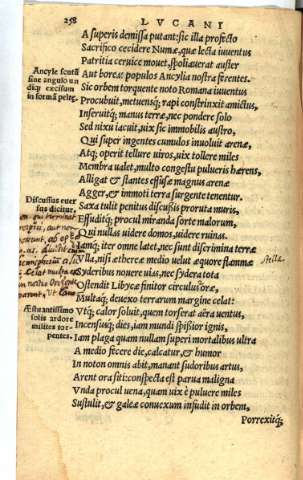 258 LVCANI
A superis demissa putant: sic illa profecto
Sacrifico cecidere Numæ, quæ lecta iuuentus
Patritia ceruice mouet, spoliauerat auster
Aut boreas populos Ancylia nostra ferentes.
Ancyle scutū
sine angulo un
diq; excisum
in formā peltę.
Sic orbem torquente noto Romana iuuentus
Procubuit, metuensq; rapi constrinxit amictus,
Inseruitq; manus terræ, nec pondere solo
Sed nixu iacuit, uix sic immobilis austro,
Qui super ingentes cumulos inuoluit arenæ,
Atq; operit tellure uiros, uix tollere miles
Membra ualet, multo congestu pulueris hærens,
Alligat & stantes effusæ magnus arenæ
Agger, & immoti terra surgente tenentur.
Saxa tulit penitus discussis proruta muris,
Discussius euer
sus dicitur.
Effuditq; procul miranda sorte malorum,
Qui nullas uidere domos, uidere ruinas.
Iamq; iter omne latet, nec sunt discrimina terræ
Vlla, nisi ætheræ medio uelut æquore flammæ
Stella
Syderibus nouere uias, nec sydera tota
Ostendit Libycæ finitor circulus oræ,
Multaq; deuexo terrarum margine celat:
Vtq; calor soluit, quem torserat aëra uentus,
Æstuantissimo
solis ardore
milites tor-
pentes.
Incensusq; dies, iam mundi spissior ignis,
Iam plaga quam nullam superi mortalibus ultra
A medio fecere die, calcatur, & humor
In noton omnis abit, manant sudoribus artus,
Arent ora siti: conspecta est parua maligna
Vnda procul uena, quam uix è puluere miles
Sustulit, & galeæ conuexum infudit in orbem,
Porrexitq;